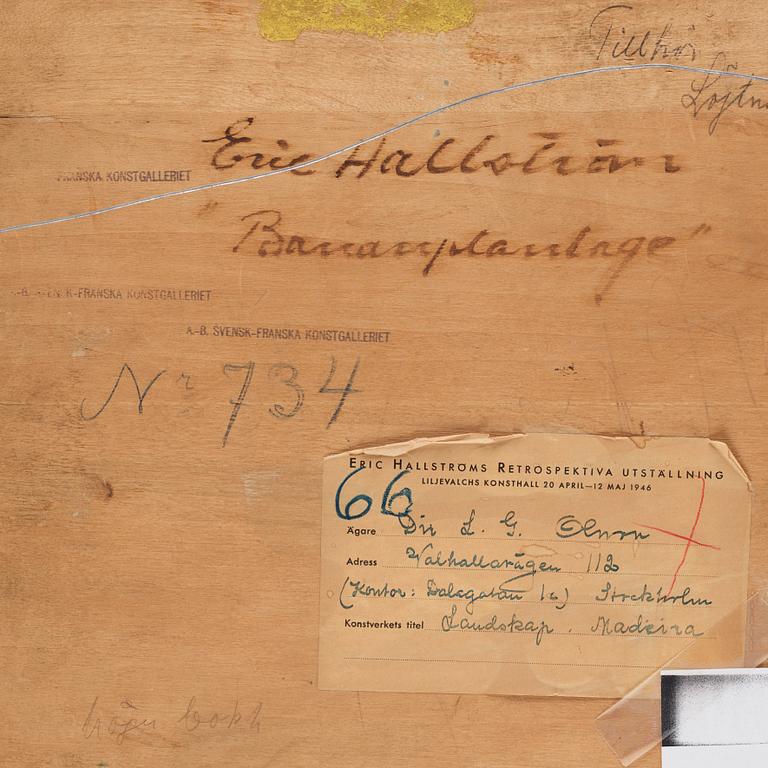 Tillhör
Löjtn
Eric Hallström
FRANSKA KONSTGALLERIET
"Bananplantage"
K-FRANSKA KONSTGALLERIET
A.-B. SVENSK-FRANSKA KONSTGALLERIET
Nr 734
ERIC HALLSTRÖMS RETROSPEKTIVA UTSTÄLLNING
LILJEVALCHS KONSTHALL 20 APRIL—12 MAJ 1946
66
Ägare Dir L. G.
Adress Valhallavägen 112
(Kontor: Dalagatan 16) Stockholm
Konstverkets titel Landskap. Madeira